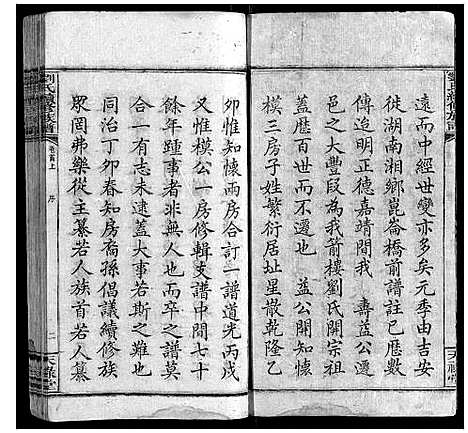 遠而中經世變亦多矣元季由吉安
徙湖南湘鄉崑崙橋前譜註已歷數
傳追明正德嘉靖間我　壽益公遷
邑之大豐段為我箭樓劉氏開宗祖
蓋歷百世而不遷也　益公開知懷
模三房子姓繁衍居址星散乾隆乙
卯惟知懷兩房合訂一譜道光丙戌
又惟模公一房修輯支譜中間七十
餘年踵事者非無人也而卒之譜莫
合一有志未逮蓋大事若斯之難也
同治丁卯春知房裔孫倡議續修族
眾罔弗樂從主纂若人族首若人纂
卷首上
序
二
天祿堂